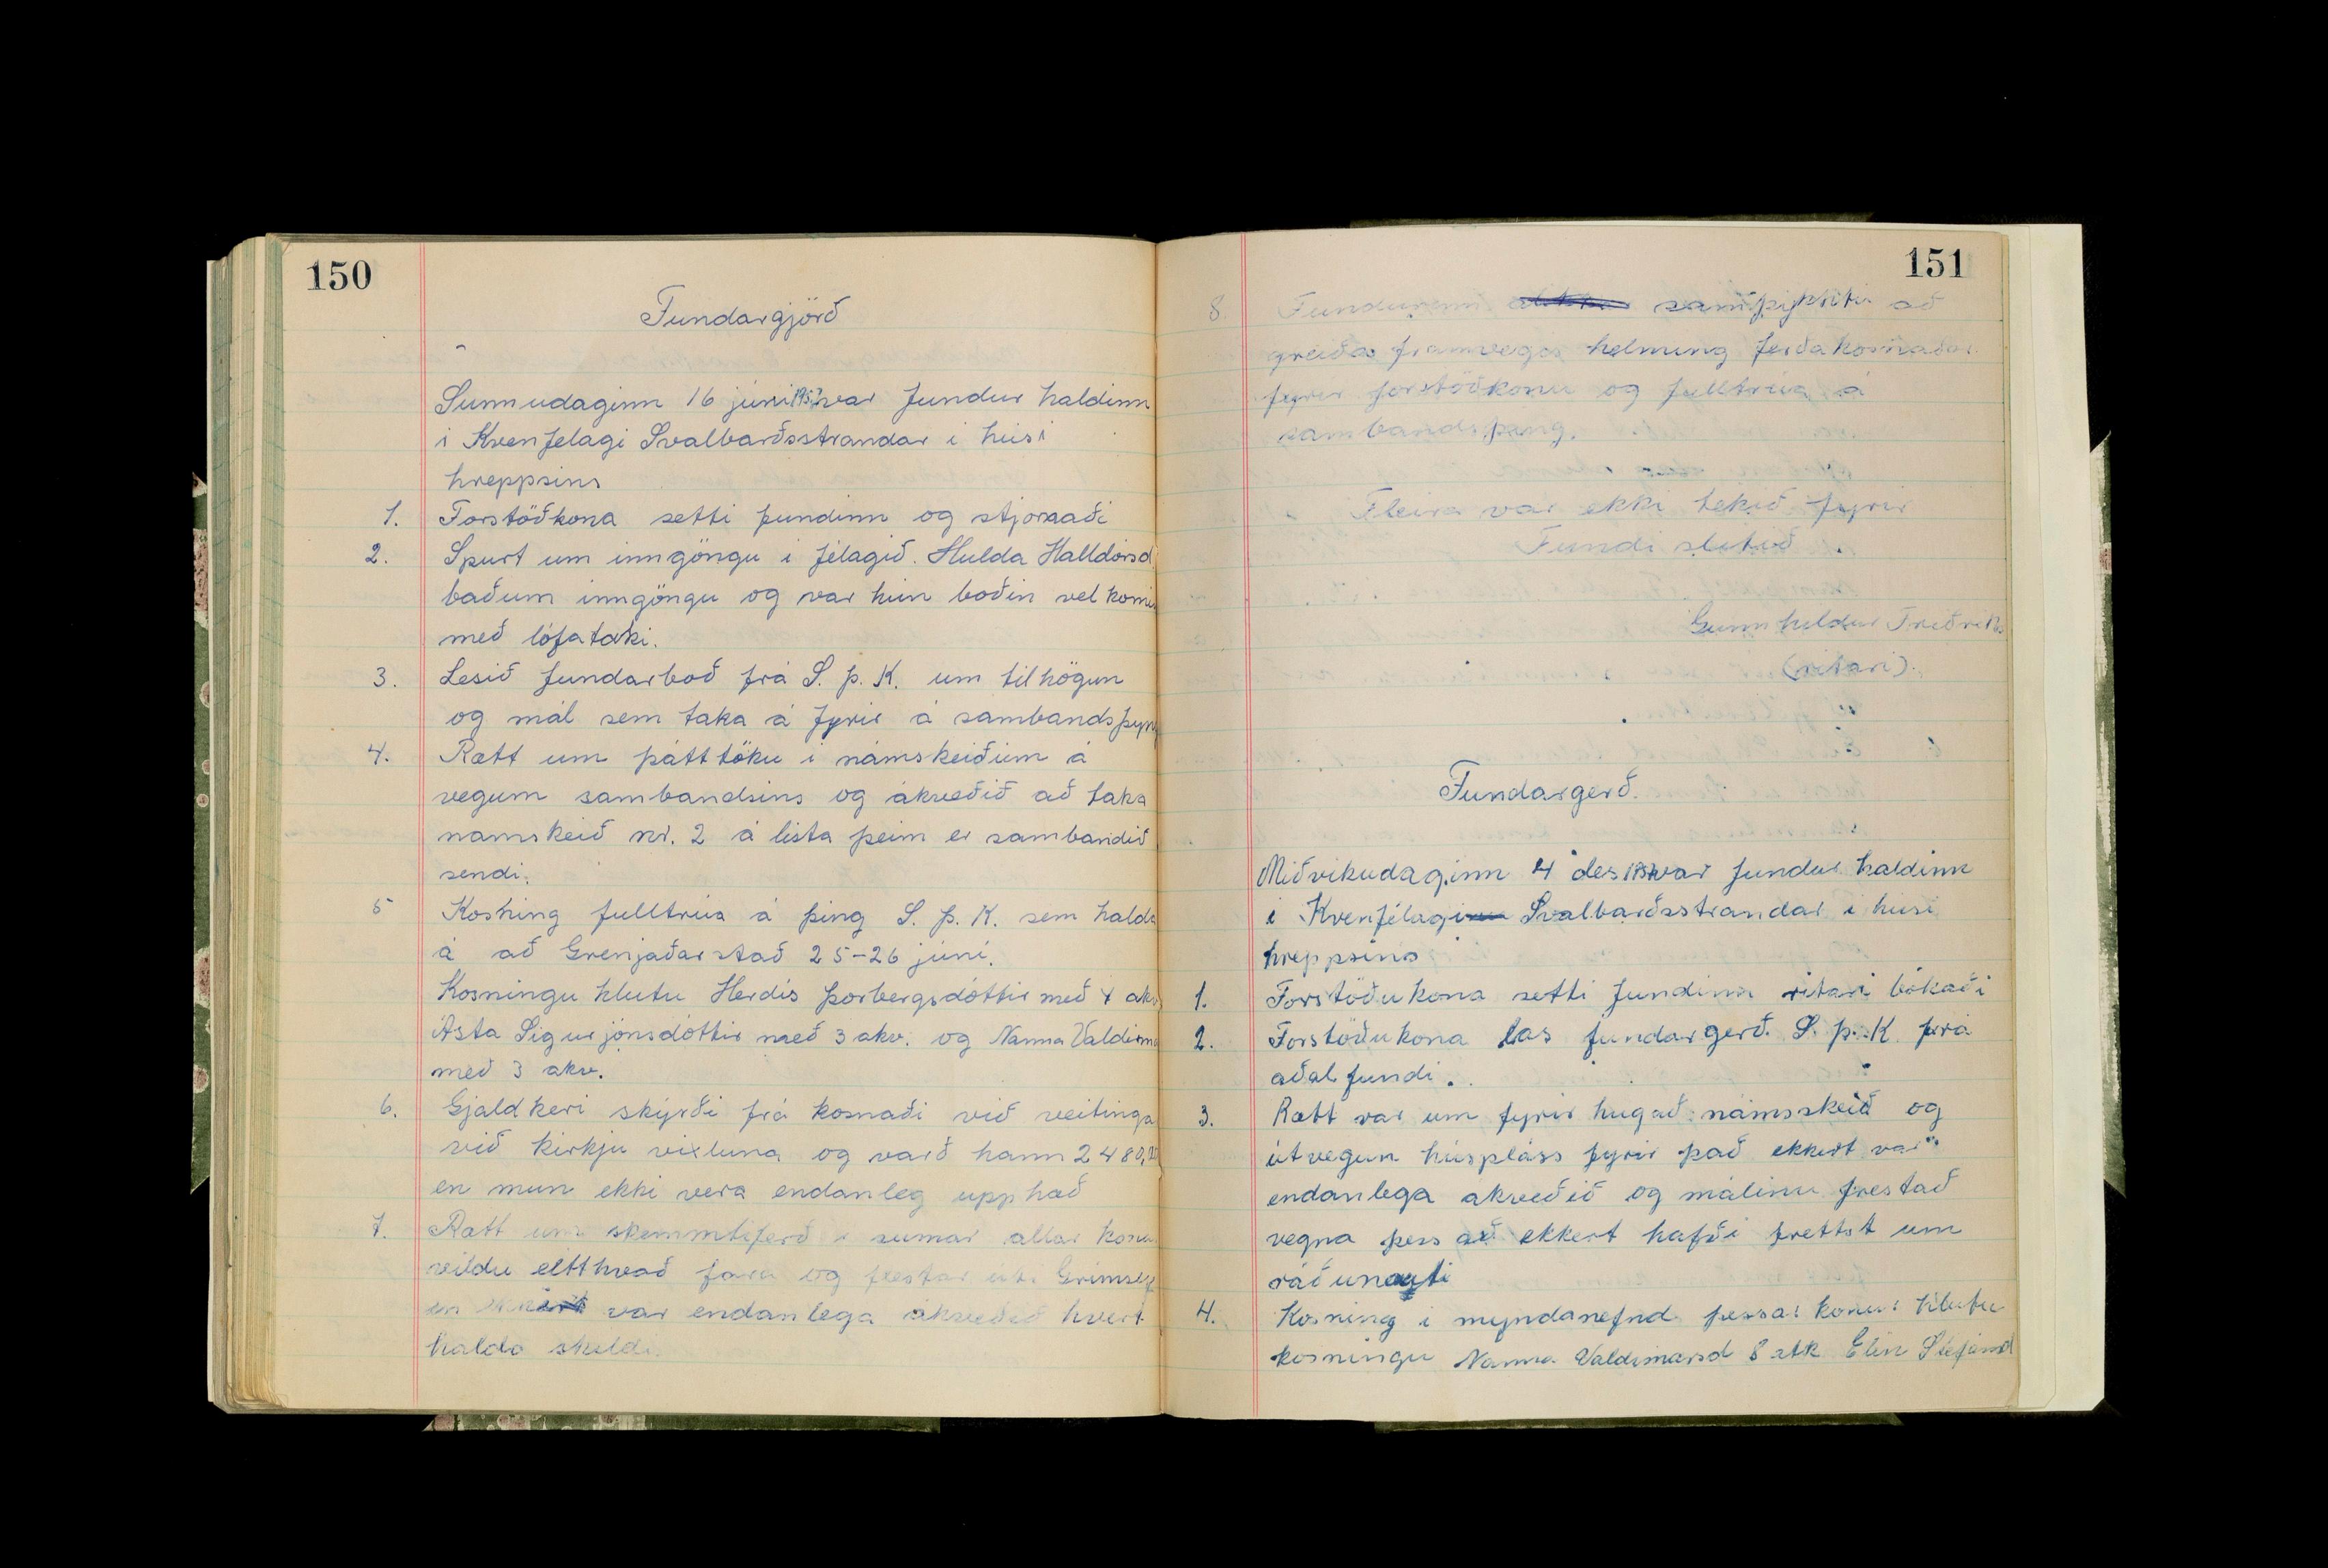 150
Fundargjörð
Sunnudaginn 16 júni 1957 var fundur haldinn
i Kvenfelagi Svalbarðsstrandar i húsi
hreppsins
1. Forstöðkona setti fundinn og stjornaði
2. Spurt um inngöngu i félagið. Hulda Halldórsd
baðum inngöngu og var hún boðin velkomin
með lófataki.
3. Lesið fundarboð frá S. þ. K. um tilhögun
og mál sem taka á fyrir á sambandsþyng
4. Rætt um þátttöku i námskeiðum á
vegum sambandsins og ákveðið að taka
namskeið nr. 2 á lista þeim er sambandið
sendi.
5 Kosning fulltrúa á þing S. þ. K. sem halda
á að Grenjaðarstað 25-26 júni.
Kosningu hlutu Herdís Þorbergsdóttir með 4 akv
Ásta Sigurjónsdóttir með 3 akv. og Nanna Valdima
með 3 akv.
6. Gjaldkeri skýrði frá kosnaði við veitinga
við kirkju vixluna og varð hann 2480,
en mun ekki vera endanleg upphæð
7. Rætt um skemmtiferð i sumar allar konu
vildu eitthvað fara og flestar út i Grímsey
en ekkert var endanlega ákveðið hvert
halda skuldi.
151
8 Fundurinn samþykkti að
greiða framvegis helming ferðakosnaðar
fyrir forstöðkonu og fulltrúa á
sambandsþing.
Fleira var ekki tekið fyrir
Fundi slitið.
Gunnhildur Friðriks
(ritari).
Fundargerð.
Miðvikudaginn 4 des 1957 var fundur haldinn
i Kvenfélagi Svalbarðsstrandar i húsi
hreppsins
1. Forstöðukona setti fundinn ritari bókaði
2. Forstöðukona las fundargerð. S. þ. K frá
aðalfundi.
3. Rætt var um fyrir hugað námsskeið og
útvegun húspláss fyrir það ekkert var
endanlega akveðið og málinu frestað
vegna þess að ekkert hafði frettst um
ráðunayti
4. Kosning i myndanefnd þessar konur hlutu
kosningu Nanna Valdimarsd 8 atk Elin Stefánsd